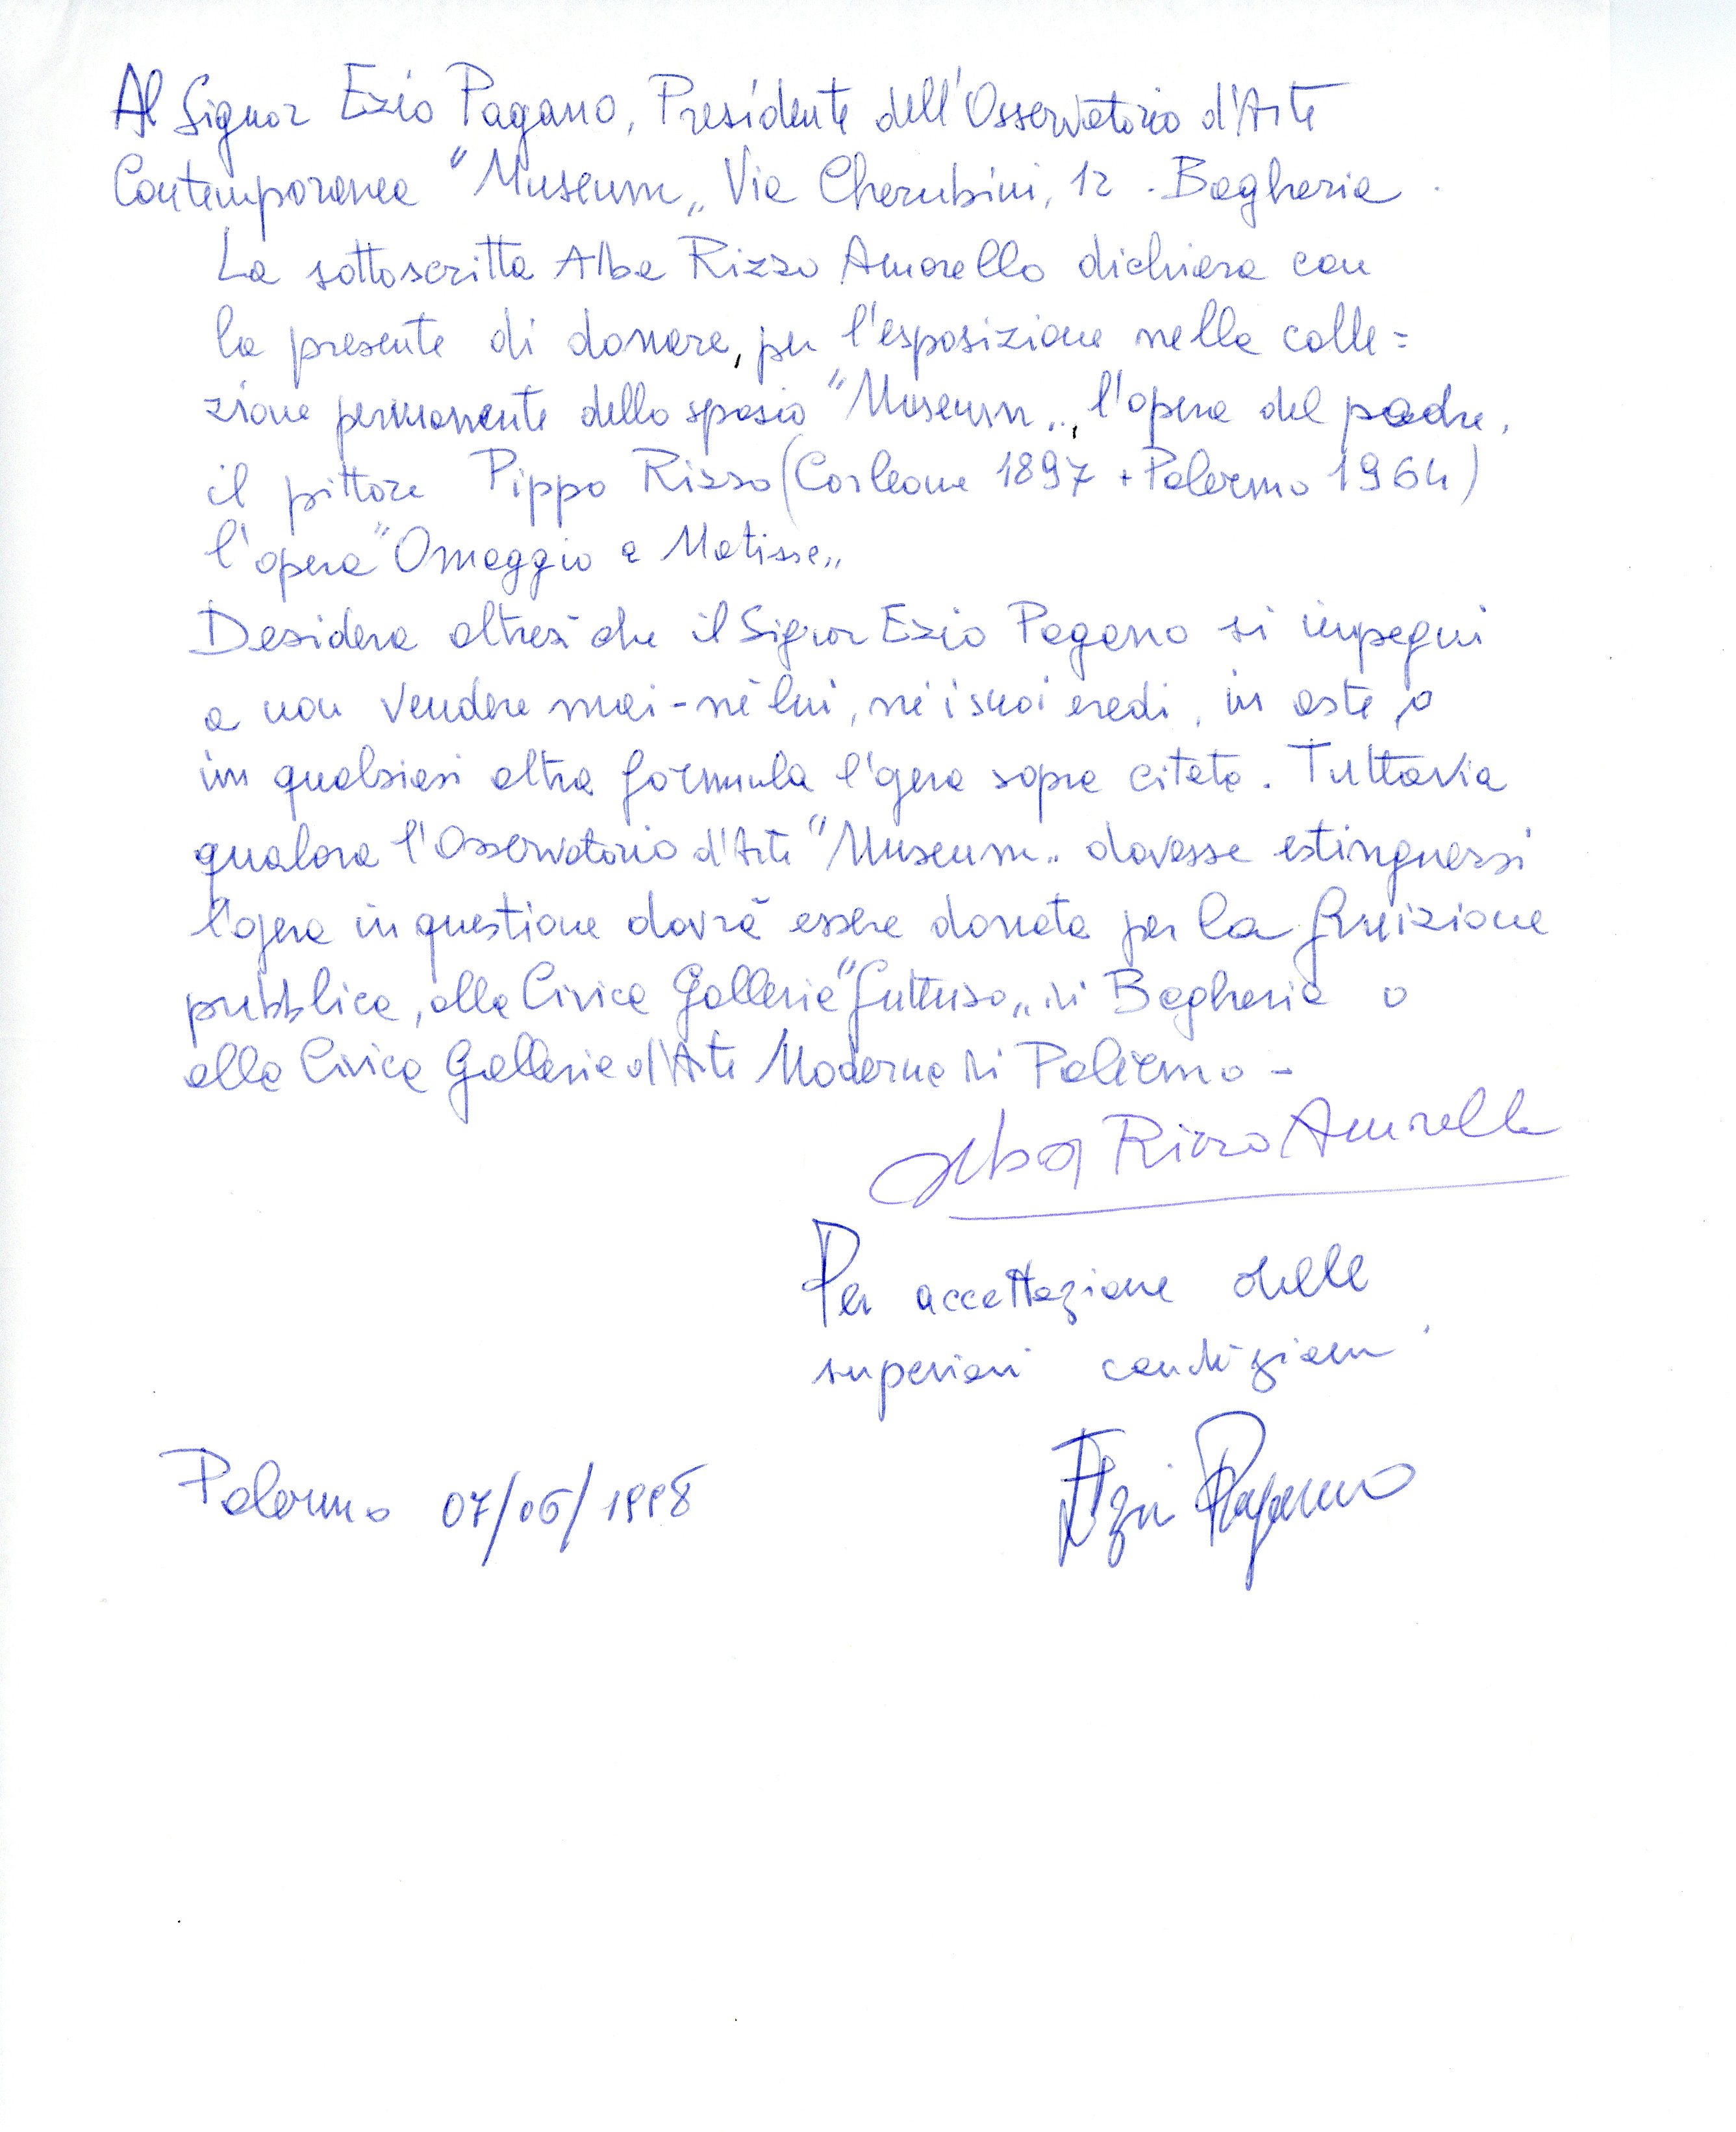 Al Signor Ezio Pagano, Presidente dell'Osservatorio d'Arte
Contemporanea "Museum„ Via Cherubini, 12 - Bagheria.
La sottoscritta Alba Rizzo Amorello dichiara con
la presente di donare, per l'esposizione nella colle=
zione permanente dello spazio "Museum„, l'opera del padre,
il pittore Pippo Rizzo (Corleone 1897 + Palermo 1964)
l'opera "Omaggio a Matisse„
Desidera altresì che il Signor Ezio Pagano si impegni
a non vendere mai - nè lui, nè i suoi eredi, in aste, o
in qualsiasi altra formula l'opera sopra citata. Tuttavia
qualora l'Osservatorio d'Arte "Museum„ dovesse estinguersi
l'opera in questione dovrà essere donata per la fruizione
pubblica, alla Civica Galleria "Guttuso„ di Bagheria o
alla Civica Galleria d'Arte Moderna di Palermo -
Alba Rizzo Amorello
Per accettazione delle
superiori condizioni
Ezio Pagano
Palermo 07/06/1998